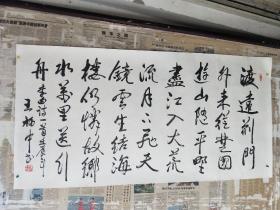 渡遠荊門
外來從楚國
遊山隨平野
盡江入大荒
流月下飛天
鏡雲生結海
樓仍憐故鄉
水萬里送行
舟 李白詩